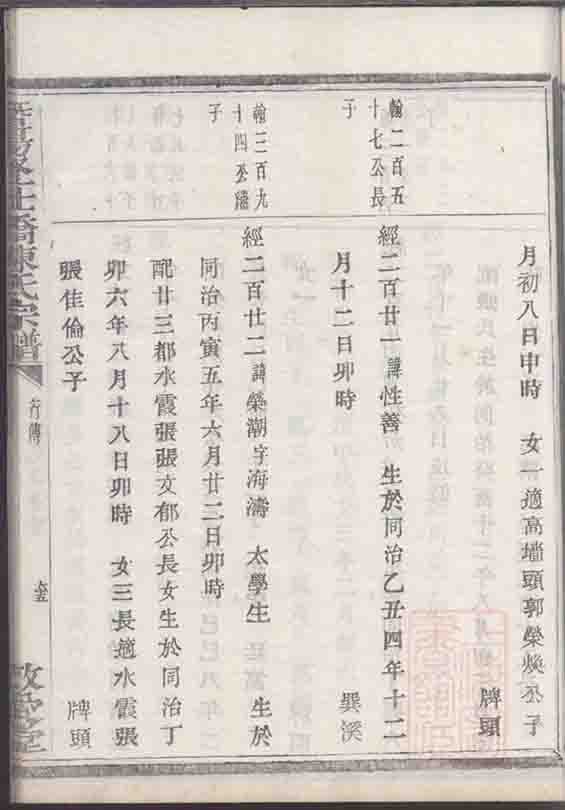 月初八日申時　女一適高墻頭郭榮煥公子
牌頭
翰二百五
十七公長
子
經二百廿一諱性善　生於同治乙丑四年十二
月十二日卯時
巽溪
翰三百九
十四公繼
子
經二百廿二諱榮潮字海濤　太學生　生於
同治丙寅五年六月廿二日卯時
配廿三都水霞張張文郁公長女生於同治丁
卯六年八月十八日卯時　女三長適水霞張
張佳倫公子
牌頭
橋陳氏宗譜
行傳